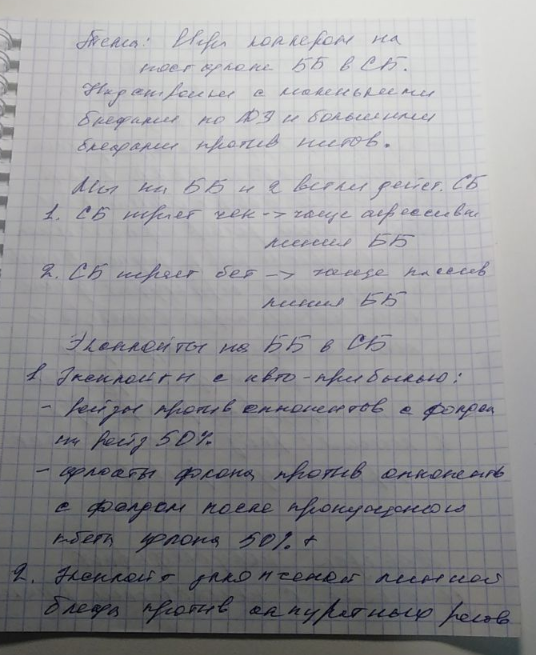 Тема: Игра коллером на
постфлопе ББ в СБ.
Надстройки с маленькими
бетами по и большими
бетами против нитов.
Мы на ББ и 2 ветки дейст. СБ
1. СБ играет чек -> чаще агрессивн
линия ББ
2. СБ играет бет -> чаще пассив
линия ББ
Эксплойты на ББ в СБ
1. Эксплойты с авто-прибылью:
- рейзы против оппонентов с фолдом
на рейз 50%
- флоаты флопа против оппонентов
с фолдом после пропущенного
к-бета флопа 50%+
2. Эксплойт линией
блефа против аккуратных регов